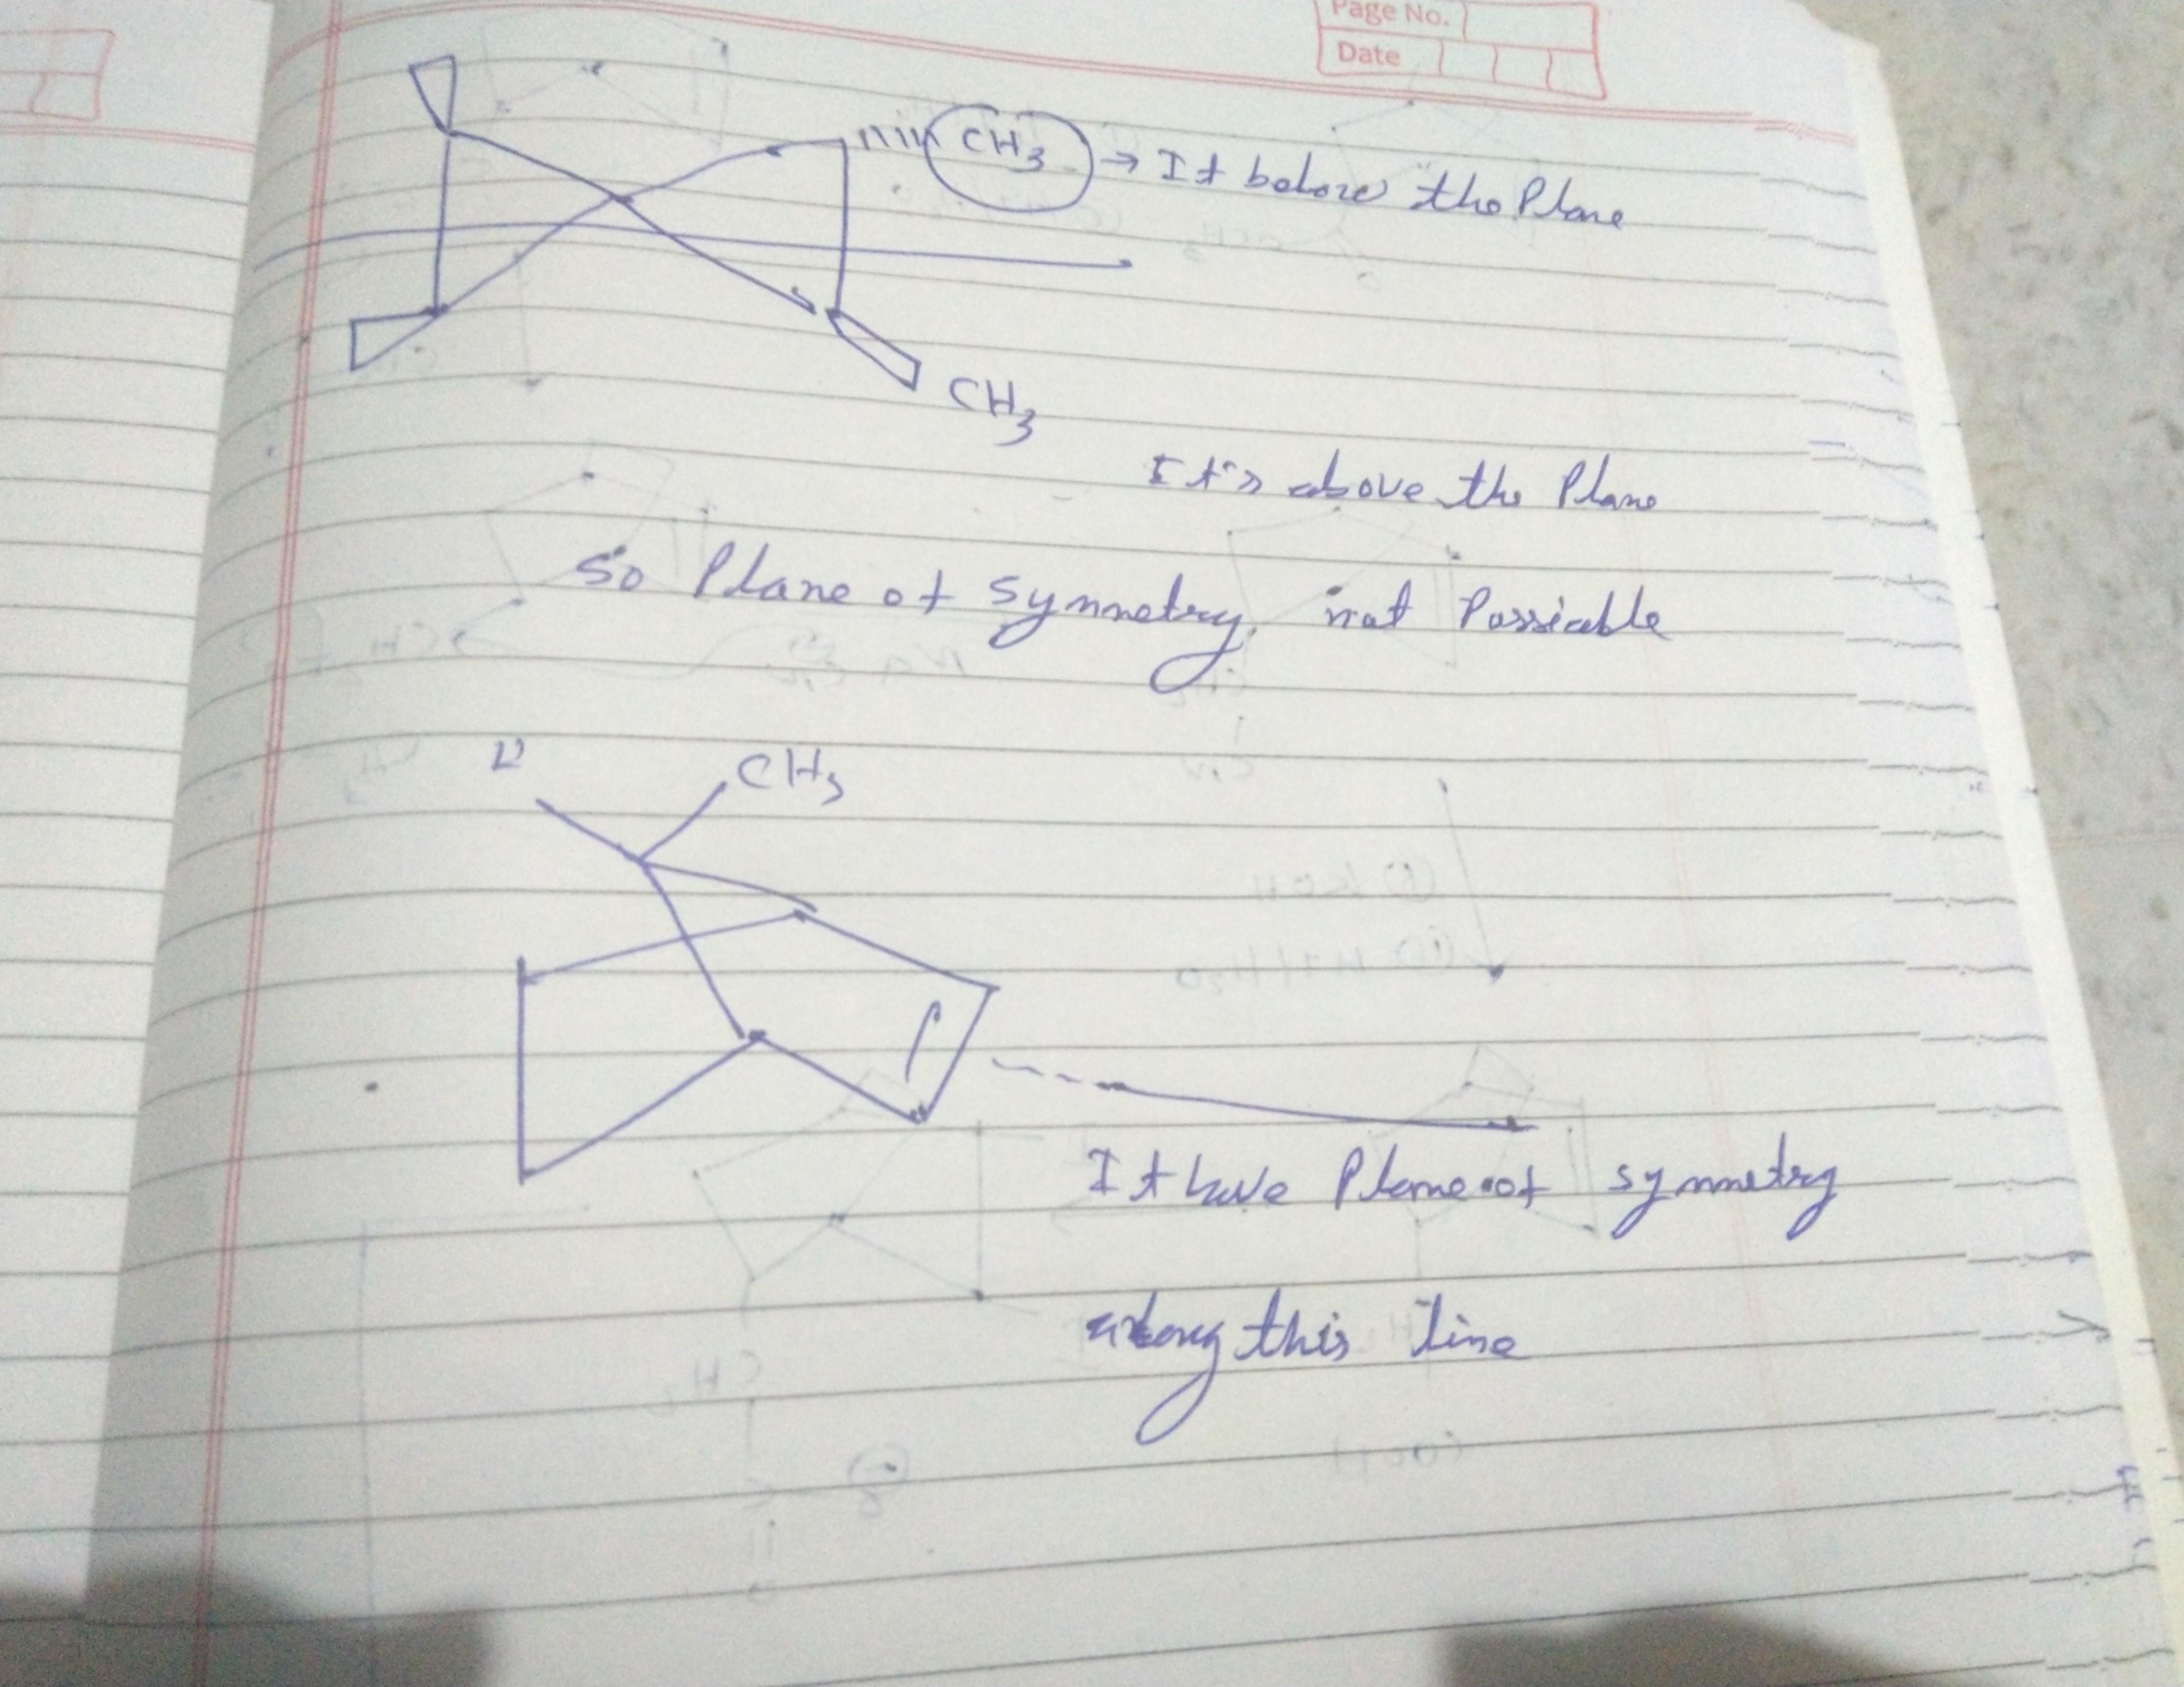 Page No.
Date
CH3 → It below the Plane
CH3
It's above the Plane
So Plane of symmetry not Possicable
D CH3
It have Plane of symmetry
along this line